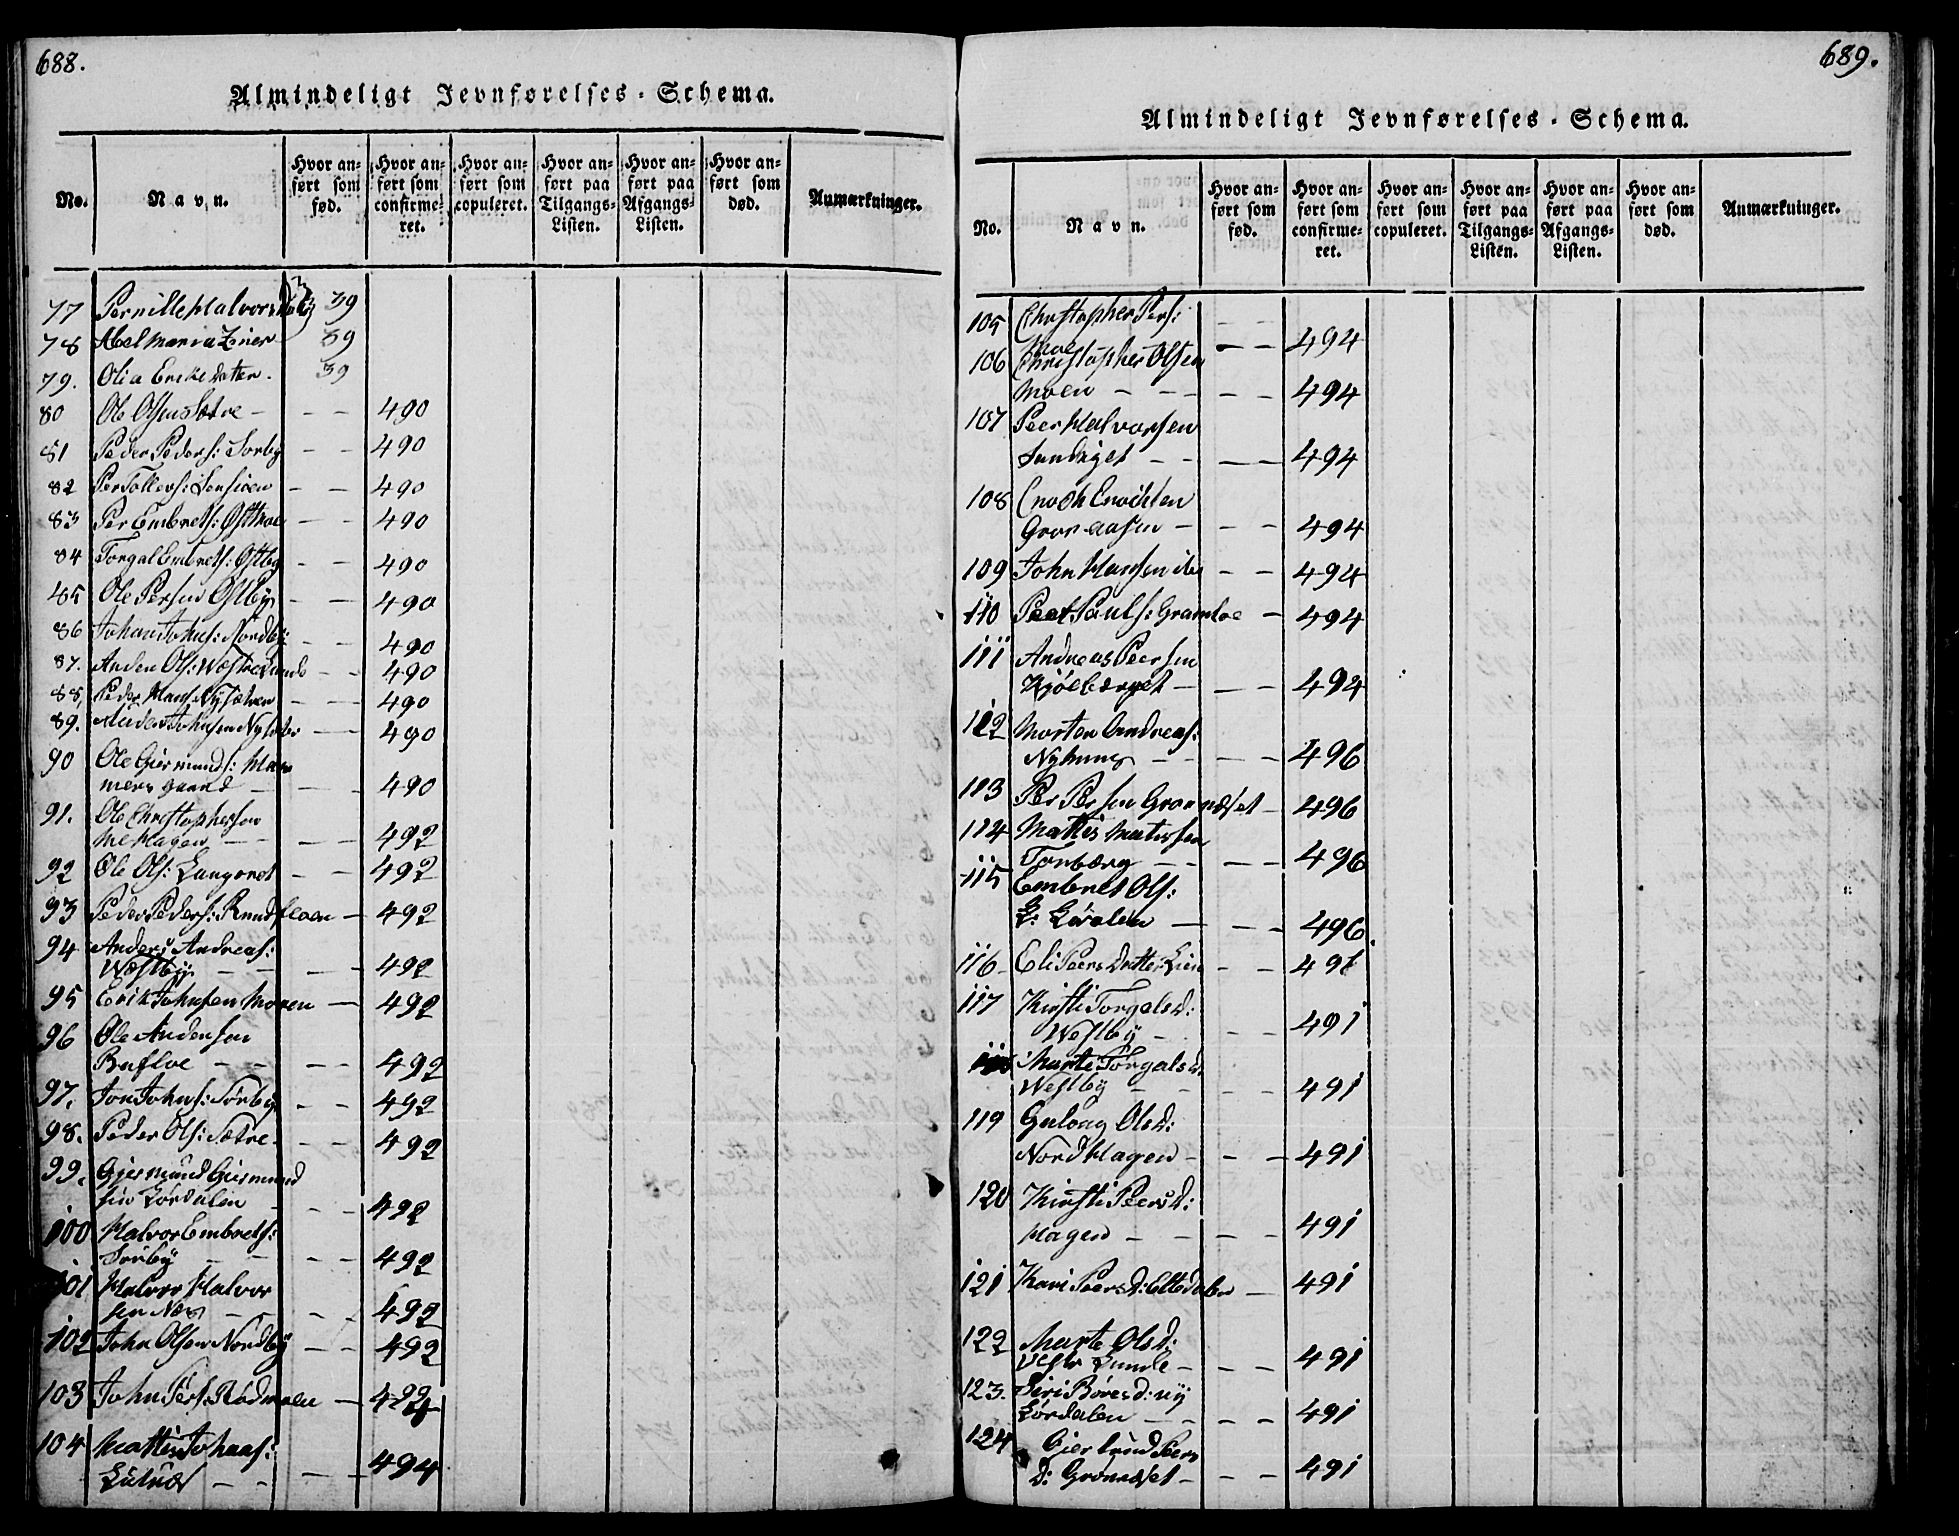 688.
Almindeligt Jevnførelses-Schema.
No.
Navn.
Hvor an-
ført som
fød.
Hvor an-
ført som
confirme-
ret.
Hvor an-
ført som
copuleret.
Hvor an-
ført paa
Tilgangs-
Listen.
Hvor an-
ført paa
Afgangs-
Listen.
Hvor an-
ført som
død.
Anmærkninger.
77 Pernille Halvors 39
78 Abel Maria 39
79. Olia Eriksdatter 39
80 Ole Olsen Sætre - - - 490
81 Peder Peders: Sørby - - 490
82 Per - - 490
83 Per Embrets: - - 490
84 Torgal Embrets: Østby - - 490
85 Ole Persen Østby - - 490
86 Johan Johns: Nordby - - 490
87. Anders Ols: - - 490
88, Peder Hans: Nysætren - - 490
89. Anders Johnsen - - 490
90 Ole Giermunds: Ham
mers gaard - - - 490
91. Ole Christophersen
Hagen - - - 492
92 Ole Ols: Langoret - - 492
93 Peder Peders: - 492
94 Anders Andreas:
Westby - - - - 492
95 Erik Johnsen Moren - 492
96 Ole Andersen
- - - - 492
97. Jon Johns: Sørby - - 492
98. Peder Ols: Sætre - - - 492
99. Gjermund Giermund
sen Lørdalen - - - 492
100 Halvor Embrets:
Sørby - - - - 492
101 Halvor Halvor
sen Næs - - - - 492
102 John Olsen Nordby - - 492
103 John Pers: Rødmoen -
104 Mattis Johans:
- - - - 494
689.
Almindeligt Jevnførelses-Schema.
No.
Navn.
Hvor an-
ført som
fød.
Hvor an-
ført som
confirme-
ret.
Hvor an-
ført som
copuleret.
Hvor an-
ført paa
Tilgangs-
Listen.
Hvor an-
ført paa
Afgangs-
Listen.
Hvor an-
ført som
død.
Anmærkninger.
105 Christopher Pers:
- - 494
106 Christopher Olsen
Moen - - - - - 494
107 Peer Halvorsen
- - - - 494
108 Enoch Enochsen
- - - 494
109 John Hansen - - 494
110 Peer Pauls: - 494
111 Andreas Peersen
Kjølberget - - - 494
112 Morten Andreas:
- - - - 496
113 Per Persen Grønnæset - 496
114 Mattis Matissen
Torberg - - - - 496
115 Embret Ols:
L: Lørdalen - - - 496.
116 Eli Peersdatter Lien - - 491
117 Kirsti Torgalsd:
Westby - - - 491
118 Marte Torgalsd:
Westby - - - 491
119 Gulong Olsd:
Nordhagen - - - 491
120 Kirsti Peersd:
Hagen - - - - 491
121 Kari Peersd: - 491
122 Marte Olsd:
- - - 491
123. Siri Børesd: ny
Lørdalen - - - - 491
124 Gierbrud Peers
d: Grønnæset - - - 491